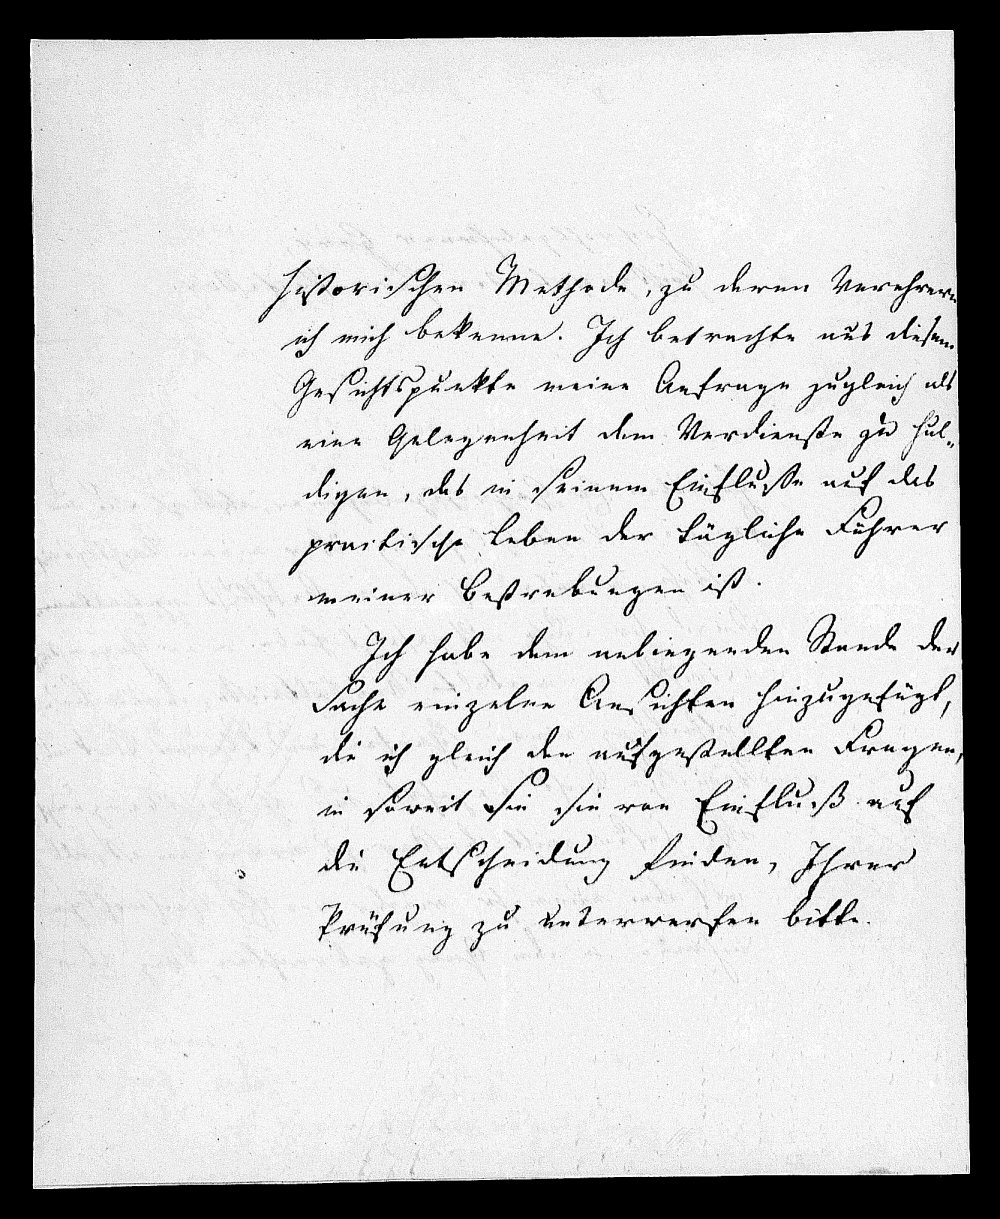 historischen Methode, zu deren Verehrern
ich mich bekenne. Ich betrachte aus diesem
Gesichtspunkte meine Anfrage zugleich als
eine Gelegenheit dem Verdienste zu hul-
digen, das in seinem Einflusse auf das
practische Leben der tägliche Führer
meiner Bestrebungen ist.
Ich habe dem anliegenden Stande der
Sache einzelne Ansichten hinzugefügt,
die ich gleich den aufgestellten Fragen,
in soweit Sie sie von Einfluß auf
die Entscheidung finden, Ihrer
Prüfung zu unterwerfen bitte.